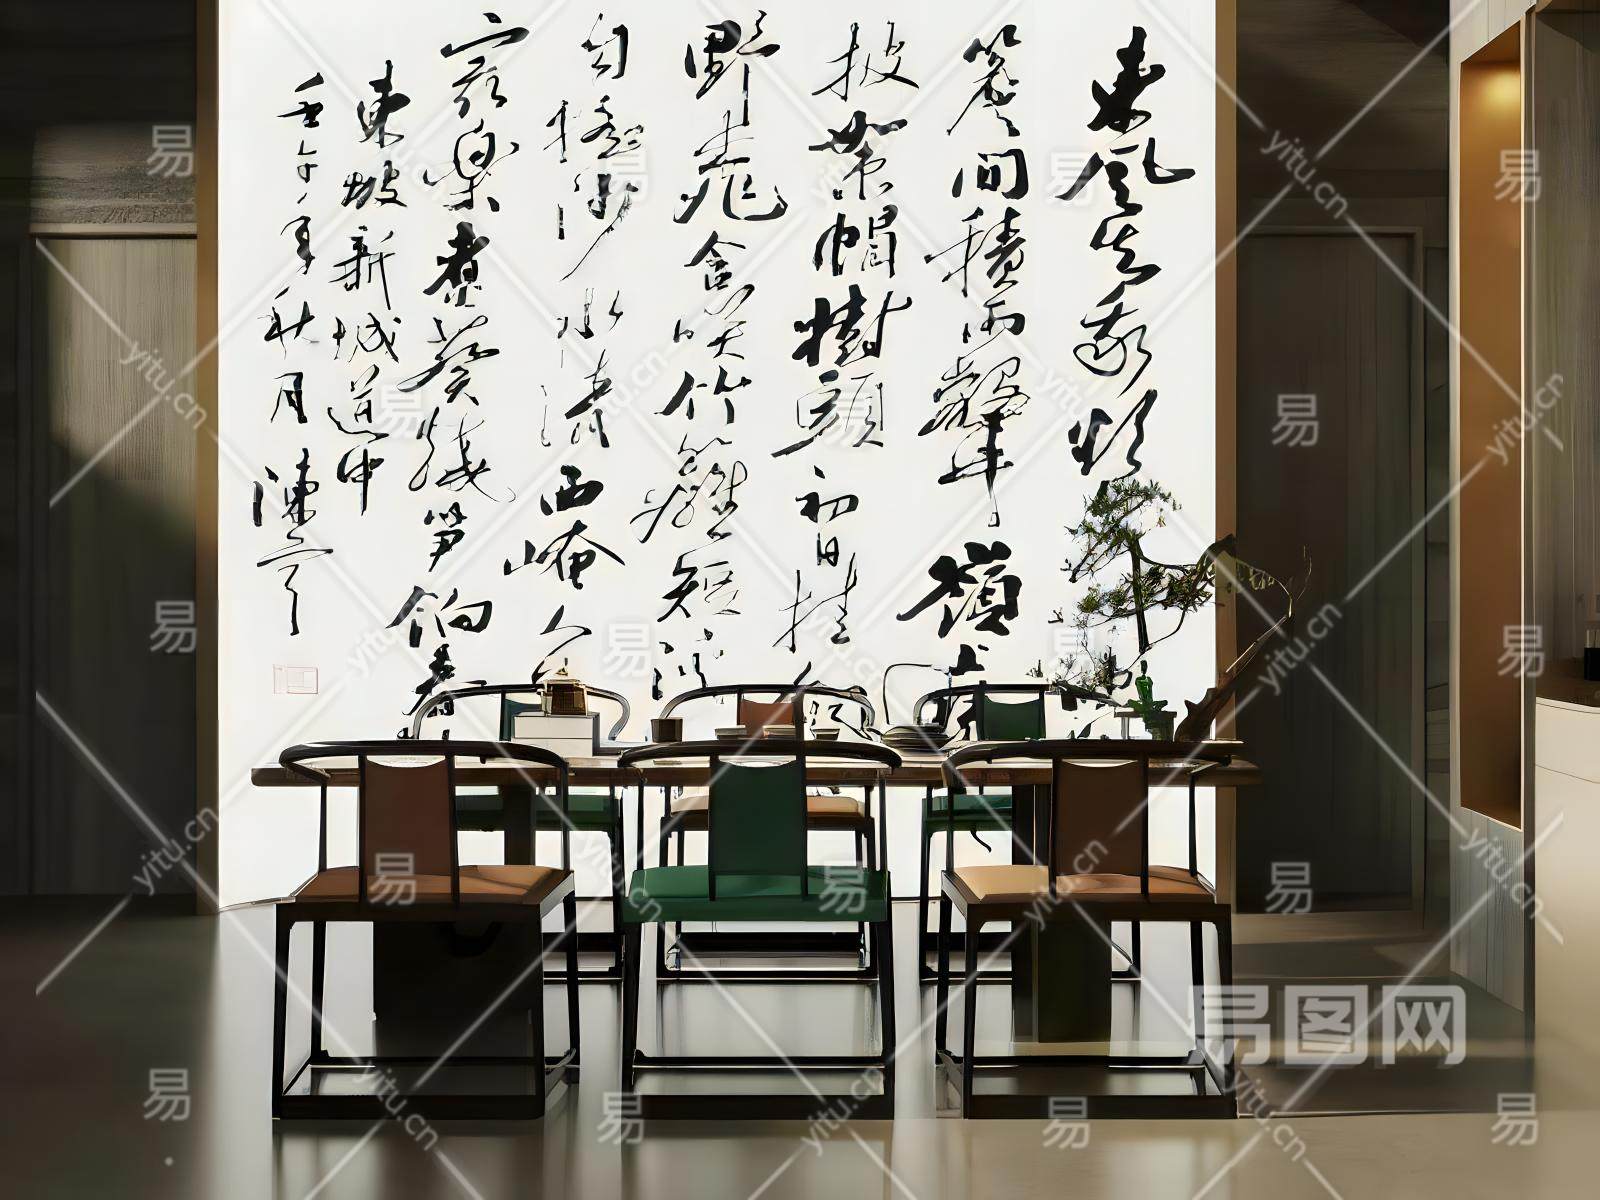 東風知我欲
簷間積雨聲嶺上
披絮帽樹頭初日挂
野桃含笑竹籬短溪
自搖沙水清西崦人
最樂煮葵燒筍餉春
東坡新城道中
壬午年秋月陳
易图网
易
yitu.cn